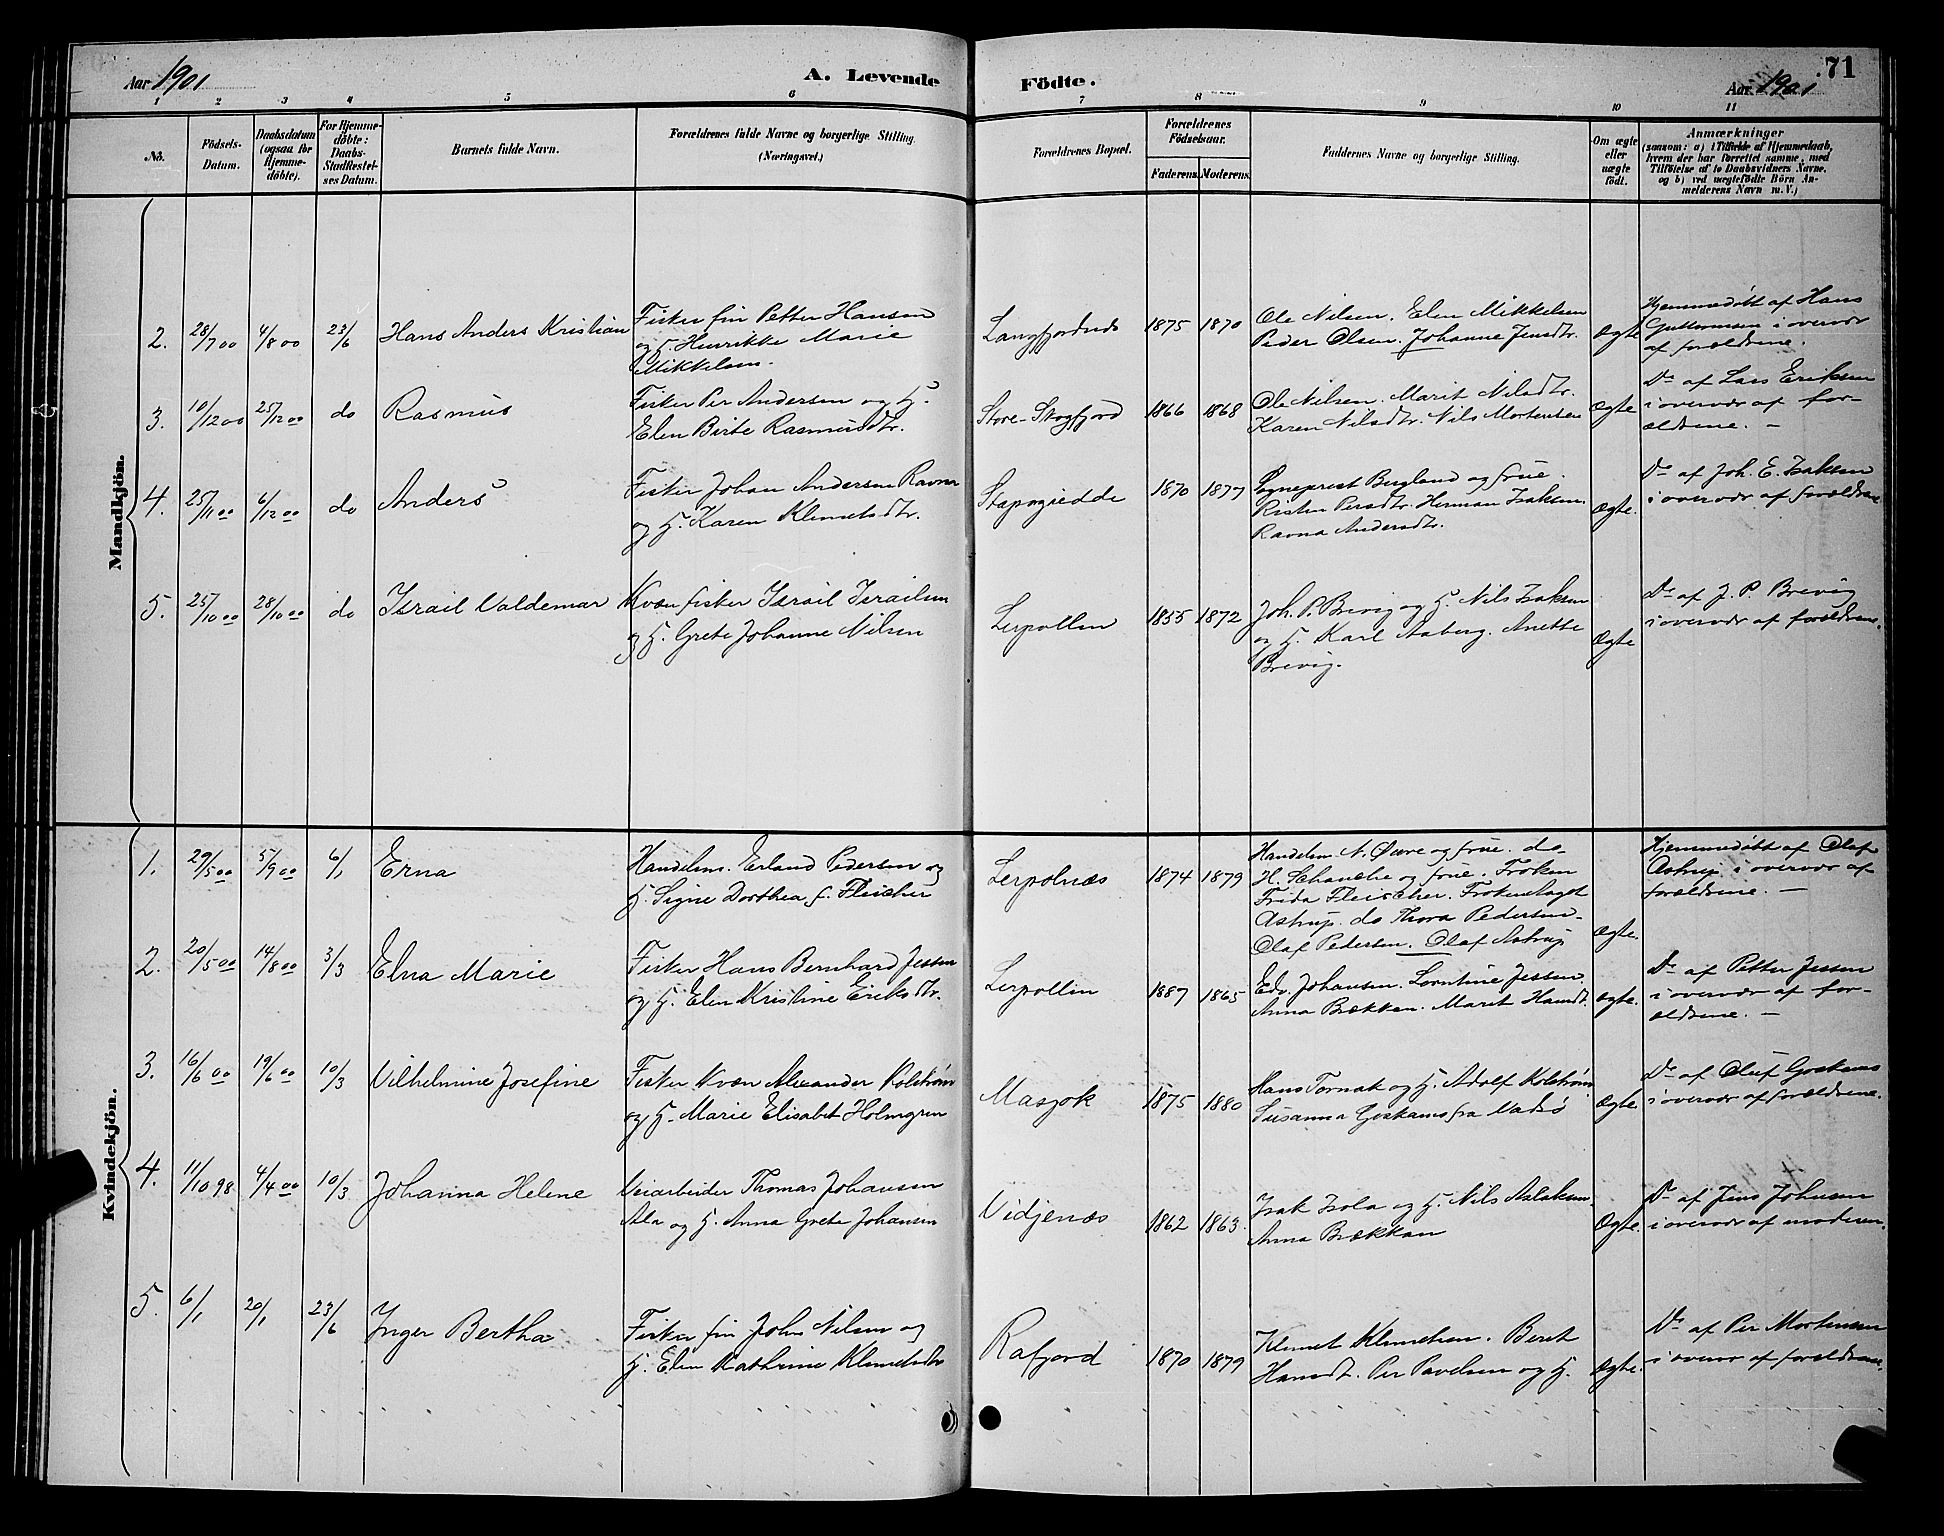 Aar 1901
A. Levende
Födte.
Aar 1901
71
1 2 3 4 5 6 7 8 9 10 11
No.
Födsels-
Datum.
Daabsdatum
(ogsaa for
Hjemme-
döbte).
For Hjemme-
döbte:
Daabs-
Stadfæstel-
ses Datum.
Barnets fulde Navn.
Forældrenes fulde Navne og borgerlige Stilling.
(Næringsvei.)
Forældrenes Bopæl.
Forældrenes
Födselsaar.
Faderens.
Moderens.
Faddernes Navne og borgerlige Stilling.
Om ægte
eller
uægte
födt.
Anmærkninger
(saasom: a) i Tilfælde af Hjemmedaab,
hvem der har forrettet samme, med
Tilföielse af to Daabsvidners Navne,
og b) ved uægtefödte Börn An-
melderens Navn m. V.)
Mandkjön.
2. 28/7 00 4/8 00 23/6 Hans Anders Kristian
Fisker fin Petter Hansen
og H. Henrikke Marie
Mikkelsen.
Langfjordnes 1875 1870
Ole Nilsen. Elen Mikkelsen
Peder Olsen. Johanne Jensdtr.
Ægte
Hjemmedöbt af Hans
Guttormsen i overvær
af forældrene.
3. 10/12 00 25/12 00 do Rasmus
Fisker Per Andersen og H.
Elen Birte Rasmusdtr.
Store-Skogfjord 1866 1868
Ole Nilsen. Marit Nilsdtr.
Karen Nilsdtr. Nils Mortensen
Ægte
Do af Lars Eriksen
i overvær af for-
ældrene. —
4. 25/11 00 6/12 00 do Anders
Fisker Johan Andersen Ravna
og H. Karen Klemetsdtr.
Stapogiedde 1870 1877
Sogneprest Bugland og frue.
Risten Persdtr. Herman Isaksen.
Ravna Andersdtr.
Ægte.
Do af Joh. E. Isaksen
i overvær af forældrene
5. 25/10 00 28/10 00 do Israil Valdemar
Kvæn fisker Israil Israilsen
og H. Grete Johanne Nilsen
Lerpollen 1855 1872
Joh. P. Brevig og H. Nils Isaksen
og H. Karl Aaberg. Anette
Brevig.
Ægte
Do af J. P. Brevig
i overvær af forældrene.
Kvindekjön.
1. 29/5 00 5/9 00 6/1 Erna
Handelsm. Erland Pedersen og
H. Signe Dorthea f. Fleischer
Lerpolnæs 1874 1879
Handelsm N. Övre og frue. do
H. Schanche og frue. Fröken
Frida Fleischer. Fröken Aagot
Astrup. do Thora Pedersen.
Olaf Pedersen. Olaf Astrup
Ægte.
Hjemmedöbt af Olaf
Astrup i overvær af
forældrene. —
2. 20/5 00 14/8 00 3/3 Elna Marie
Fisker Hans Bernhard Jessen
og H. Elen Kristine Eriksdtr.
Lerpollen 1887 1865
Edv. Johansen. Lorntine Jessen.
Anna Brækken. Marit Hansdt.
Ægte.
Do af Petter Jessen
i overvær af for-
ældrene. —
3. 16/6 00 19/6 00 10/3 Vilhelmine Josefine
Fisker Kvæn Alexander Kolström
og H. Marie Elisabet Holmgren
Masjok 1875 1880
Hans Tornak og H. Adolf Kolström
Susanna Goskams fra Vadsö
Ægte.
Do af Oluf Goskams
i overvær af forældrene.
4. 11/10 98 4/4 00 10/3 Johanna Helene
Veiarbeider Thomas Johansen
Ala og H. Anna Grete Johansen
Vidjenæs 1862 1863.
Isak Isola og H. Nils Aslaksen.
Anna Brækkan
Ægte.
Do af Jens Johnsen
i overvær af moderen.
5. 6/1 20/1 23/6 Inger Bertha
Fisker fin John Nilsen og
H. Elen Kathrine Klemetsdtr
Rafjord 1870 1879
Klemet Klemetsen. Beret
Hansdt. Per Pavelsen og H.
Ægte.
Do af Per Mortensen
i overvær af forældrene.